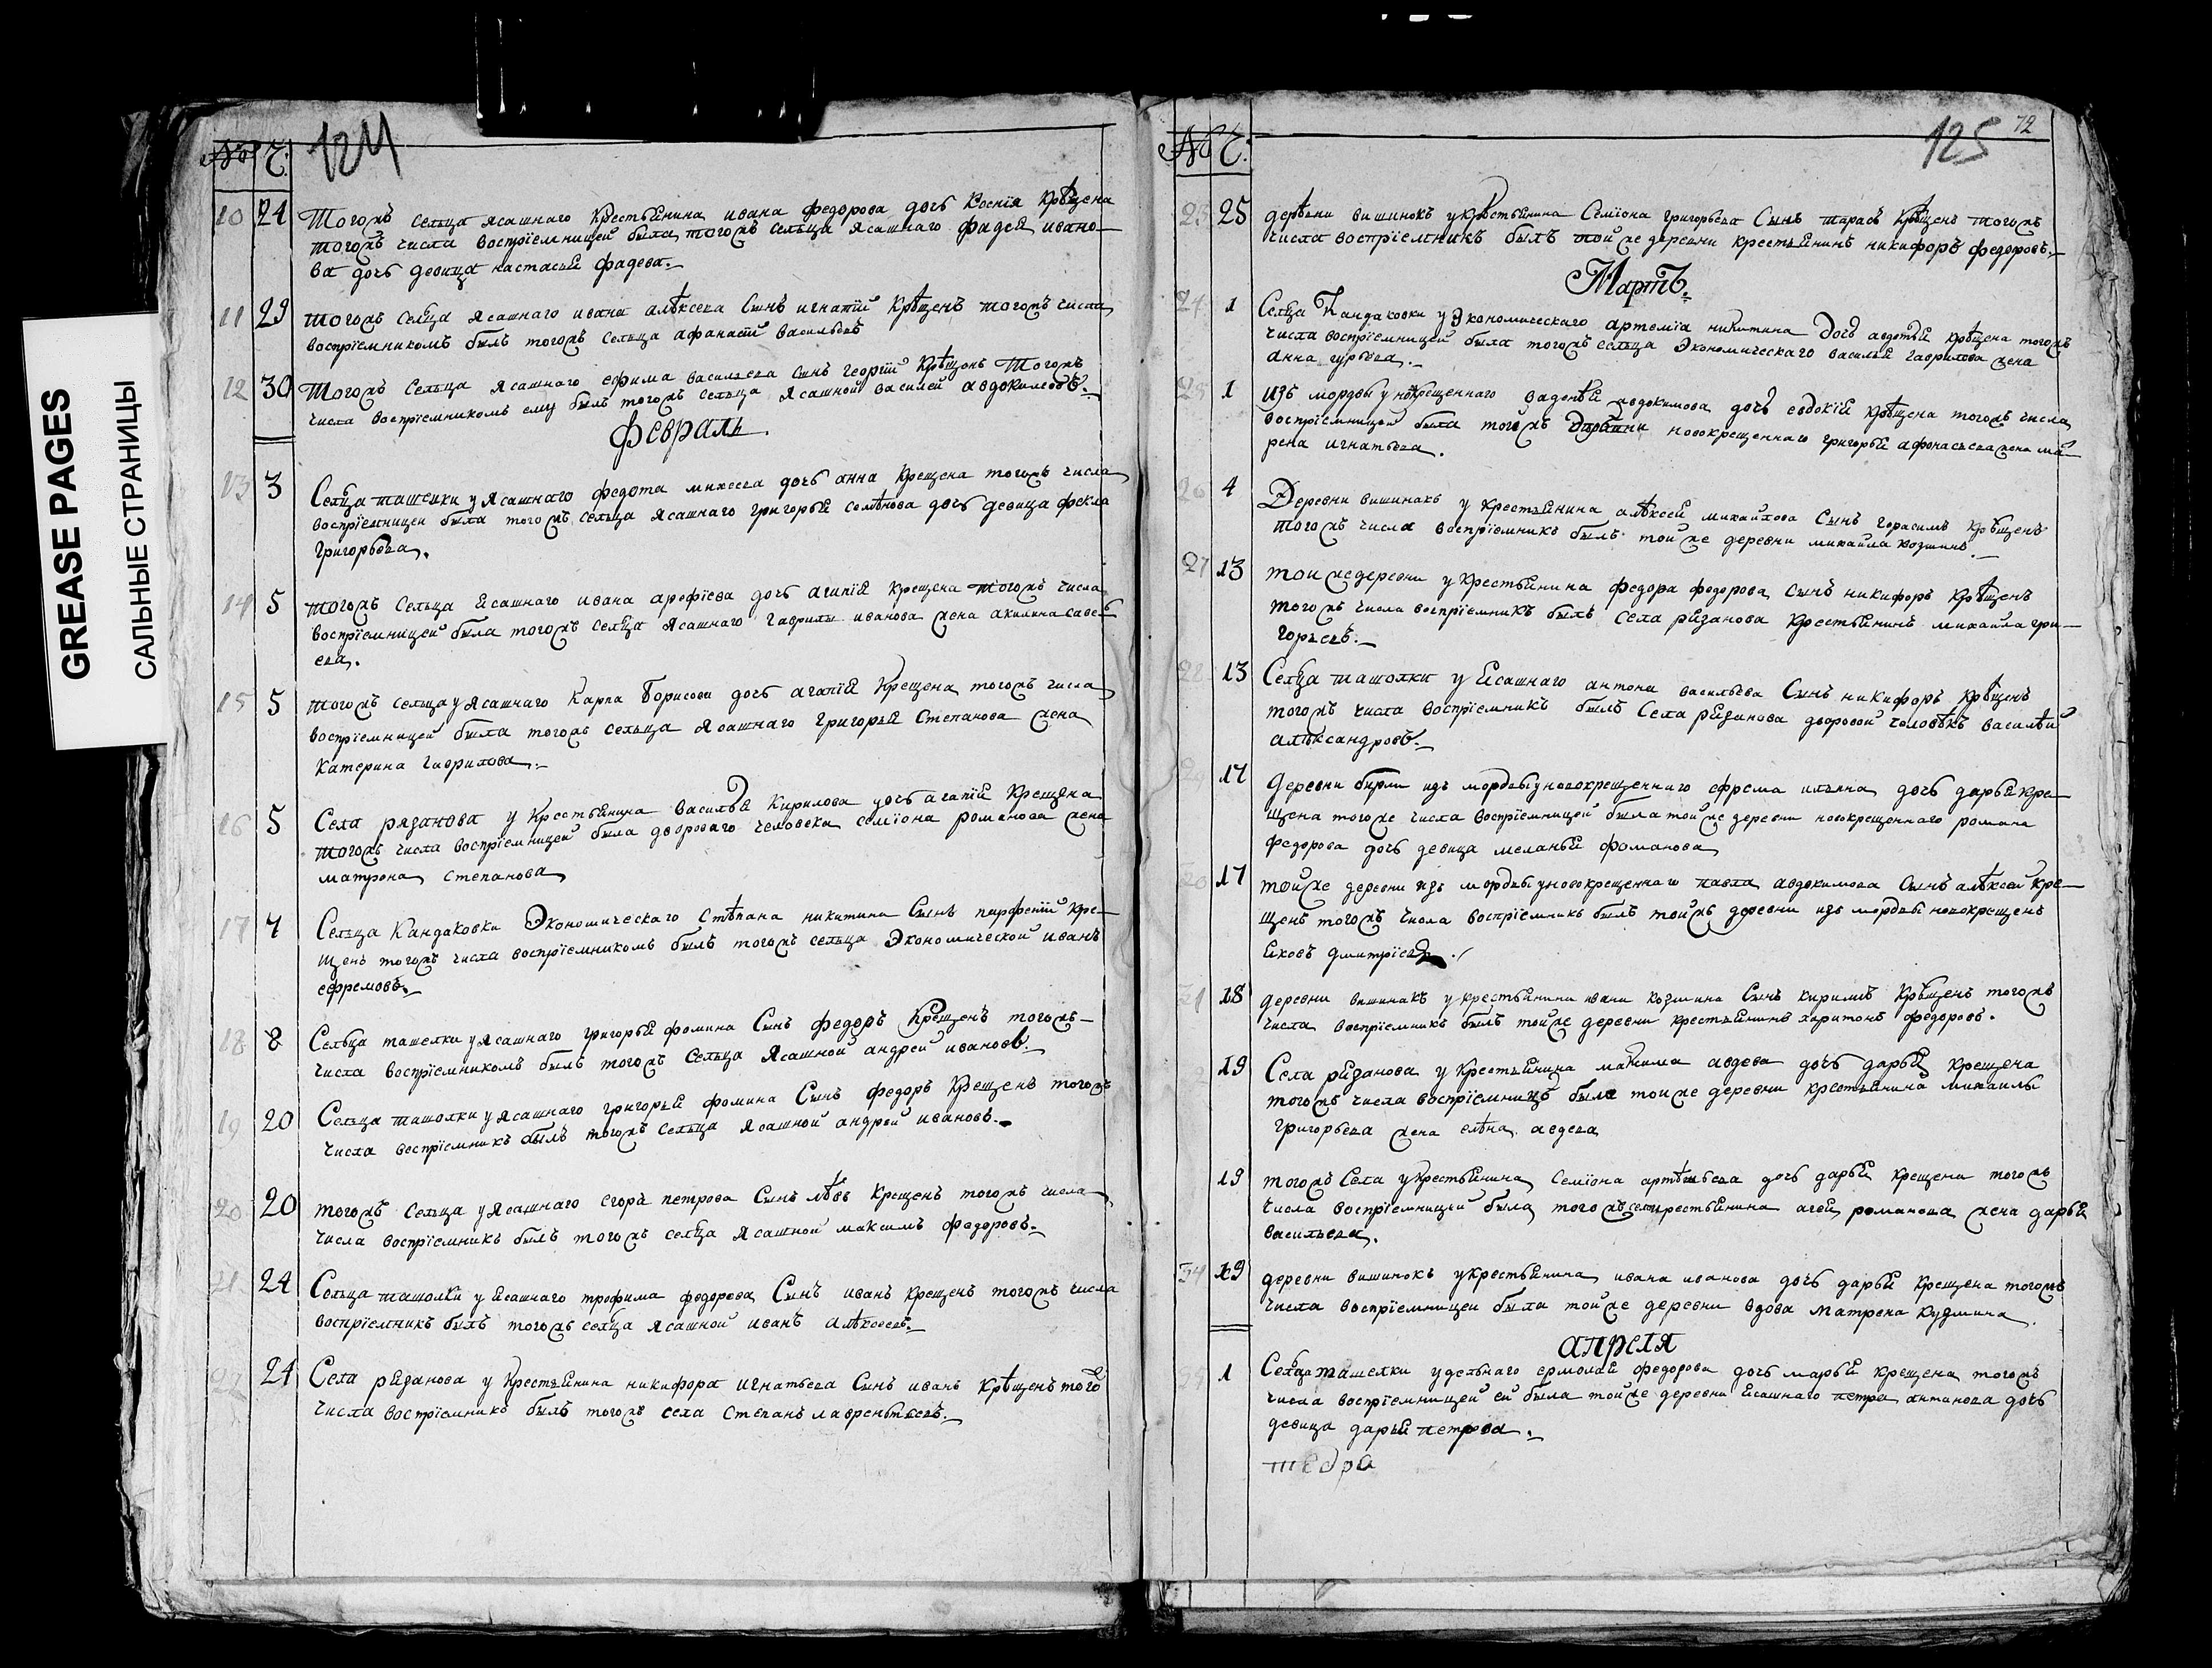 GREASE PAGES
САЛЬНЫЕ СТРАНИЦЫ
№ Ч. 124
10 24 Тогожъ сельца ясашнаго крестьянина ивана федорова дочь ксенiя крѣщена
тогожъ числа воспрiемницей была тогожъ сельца ясашнаго фадея ивано-
ва дочь девица настасья фадева.
11 29 тогожъ сельца ясашнаго ивана алѣксева сынъ игнатiй крѣщенъ тогожъ числа
воспрiемникомъ былъ тогожъ сельца афанасiй васильевъ
12 30 Тогожъ сельца ясашнаго ефима васильева сынъ георгiй крѣщенъ тогожъ
числа воспрiемникомъ ему былъ тогожъ сельца ясашной василей авдокимовъ.
февраль.
13 3 Сельца ташелки у ясашнаго федота михеева дочь анна крещена тогожъ числа
воспрiемницеи была тогожъ сельца ясашнаго григорья семѣнова дочь девица фекла
григорьева.
14 5 тогожъ сельца ясашнаго ивана арефiева дочь агапiя крещена тогожъ числа
воспрiемницей была тогожъ сельца ясашнаго гаврилы иванова жена акилина савель
ева.
15 5 тогожъ сельца у ясашнаго карпа борисова дочь агапiя крещена тогожъ числа
воспрiемницей была тогожъ сельца ясашнаго григорья степанова жена
катерина гаврилова.
16 5 Села рязанова у крестьянина василья кирилова дочь агапiя крещена
тогожъ числа воспрiемницей была двороваго человека семiона романова жена
матрона степанова
17 7 Сельца Кандаковки Экономическаго стѣпана никитина сынъ парфенiй кре-
щенъ тогожъ числа воспрiемникомъ былъ тогожъ сельца Экономической иванъ
ефремовъ.
18 8 Сельца ташелки у ясашнаго григорья фомина сынъ федоръ крещенъ тогожъ-
числа воспрiемникомъ былъ тогожъ сельца ясашной андрей ивановъ.
19 20 Сельца ташолки у ясашнаго григорья фомина Сынъ федоръ крещенъ тогожъ
числа воспрiемникъ былъ тогожъ сельца ясашной андрей ивановъ.
20 20 тогожъ сельца у ясашнаго егора петрова сынъ лѣвъ крещенъ тогожъ числа
числа воспрiемникъ былъ тогожъ сельца ясашной максимъ федоровъ.
21 24 Сельца ташолки у ясашнаго трофима федорова Сынъ иванъ крещенъ тогожъ числа
воспрiемникъ былъ тогожъ сельца ясашной иванъ алѣксеевъ.
22 24 Села рязанова у крестьянина никифора игнатьева сынъ иванъ крѣщенъ того
числа воспрiемникъ былъ тогожъ села степанъ лаврентьевъ.
№ Ч. 125 72
23 25 дерѣвни вишинокъ у крѣстьянина Семiона григорьева Сынъ тарасъ крѣщенъ тогожъ
числа воспрiемникъ былъ тойже деревни крестьянинъ никифоръ федоровъ.
Мартъ.
24 1 Сельца Кандаковки у Экономическаго артемiя никитина дочь авдотья крѣщена тогожъ
числа воспрiемницей была тогожъ сельца Экономическаго василья гаврилова жена
анна гурьева.
25 1 изъ мордвы у авдокимова дочь евдокiя крѣщена тогожъ числа
воспрiемницей была тогожъ новокрещеннаго григорья афонасьева жена ма-
рена игнатьева.
26 4 Деревни вишинакъ у крестьянина алѣксея михайлова Сынъ герасимъ крѣщенъ
тогожъ числа воспрiемникъ былъ тойже деревни михаила козминъ.
27 13 тоижедеревни у крестьянина федора федорова сынъ никифоръ крѣщенъ
тогожъ числа воспрiемникъ былъ села рязанова крестьянинъ михайла гри-
горьевъ.
13 Сельца ташолки у ясашнаго антона васильева Сынъ никифоръ крѣщенъ
тогожъ числа воспрiемникъ былъ Села рязанова дворовой человѣкъ василѣй
алѣксандровъ.
17 деревни бирли изъ мордвы у новокрещеннаго ефрема ильина дочь дарья кре-
щена тогоже числа воспрiемницей была тойже деревни новокрещеннаго романа
федорова дочь девица меланья фоманова
17 тойже деревни изъ мордвы у новокрещеннаго павла авдокимова Сынъ алѣксей кре-
щенъ тогожъ числа воспрiемникъ былъ тойжъ деревни изъ мордвы новокрещенъ
яковъ дмитрiевъ.
31 18 деревни вишинакъ у крестьянина ивана козмина Сынъ кирилъ крѣщенъ тогожъ
числа воспрiемникъ былъ тойже деревни крестьянинъ харитонъ федоровъ.
19 Села рязанова у крестьянина максима авдева дочь дарья крещена
тогожъ числа воспрiемница была тоиже деревни крестьянина михаилы
григорьева жена елѣна авдева
19 тогожъ Села у крестьянина Семiона артѣмьева дочь дарья крещена тогожъ
числа воспрiемницей была тогожъ села крестьянина агея романова жена дарья
васильева.
34 19 деревни вишинокъ у крестьянина ивана иванова дочь дарья крещена тогожъ
числа воспрiемницеи была тойже деревни вдова матрена кузмина.
апреля
1 Сельца ташелки удельнаго ермолая федорова дочь марья крещена тогожъ
числа воспрiемницей ей была тойже деревни ясашнаго петра антанова дочь
девица дарья петрова.